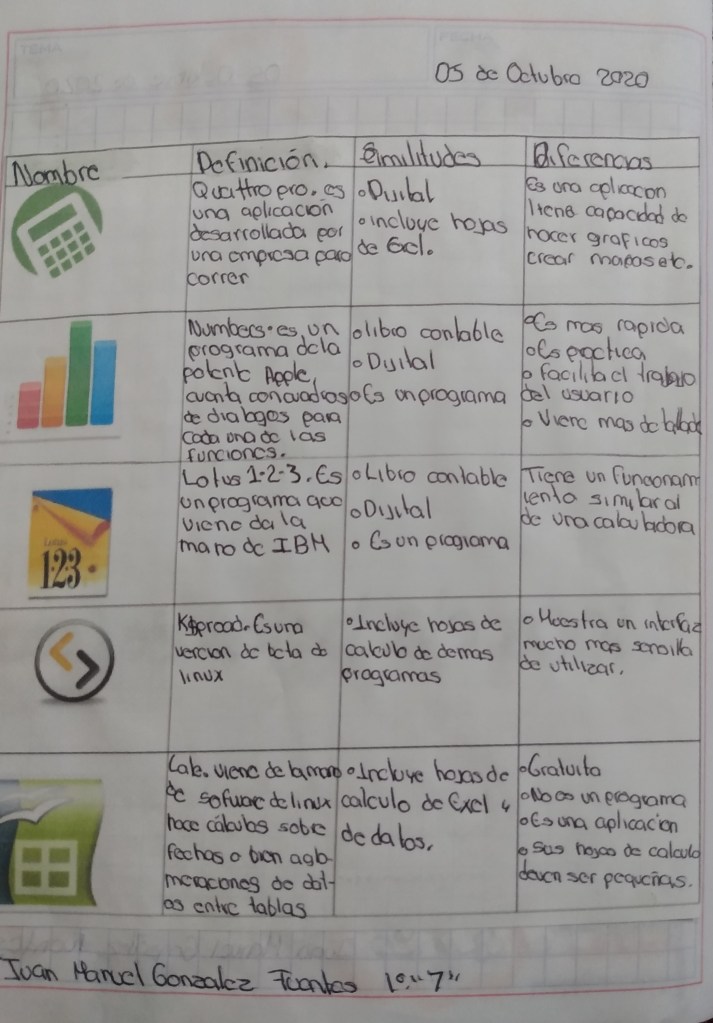 TEMA
FECHA
05 de Octubro 2020
Nombre
Definición.
Similitudes
Diferencias
Quattro pro. es
una aplicación
desarrollada por
una empresa para
correr
o Dijital
o incluye hojas
de Excl.
Es una aplicacon
Itene capacidad de
hacer graficos
crear mapas etc.
Numbers. es un
programa dela
potente Apple,
cuenta con cuadros
de dialogos para
cada una de las
funciones.
o libro contable
o Dijital
o Es un programa
o Es mas rapida
o Es practica
o facilita el trabajo
del usuario
o Viene mas detallado
Lotus 1-2-3. Es
un programa que
viene da la
mano de IBM
o Libro contable
o Dijital
o Es un programa
Tiene un funcionam
iento similar al
de una calculadora
Lotus
123
Kspread. Es una
vercion de beta de
linux
o Incluye hojas de
calculo de demas
programas
o Muestra un interfaz
mucho mas sencilla
de utilizar.
Calc. viene de la mano
de sofware de linux
hace cálculos sobre
fechas o bien aglo-
meraciones de dat-
os entre tablas
o Incluye hojas de
calculo de Excl y
de datos.
o Gratuito
o No es un programa
o Es una aplicacion
o Sus hojas de calculo
deven ser pequeñas.
Juan Manuel Gonzalez Fuentes 1º "7"